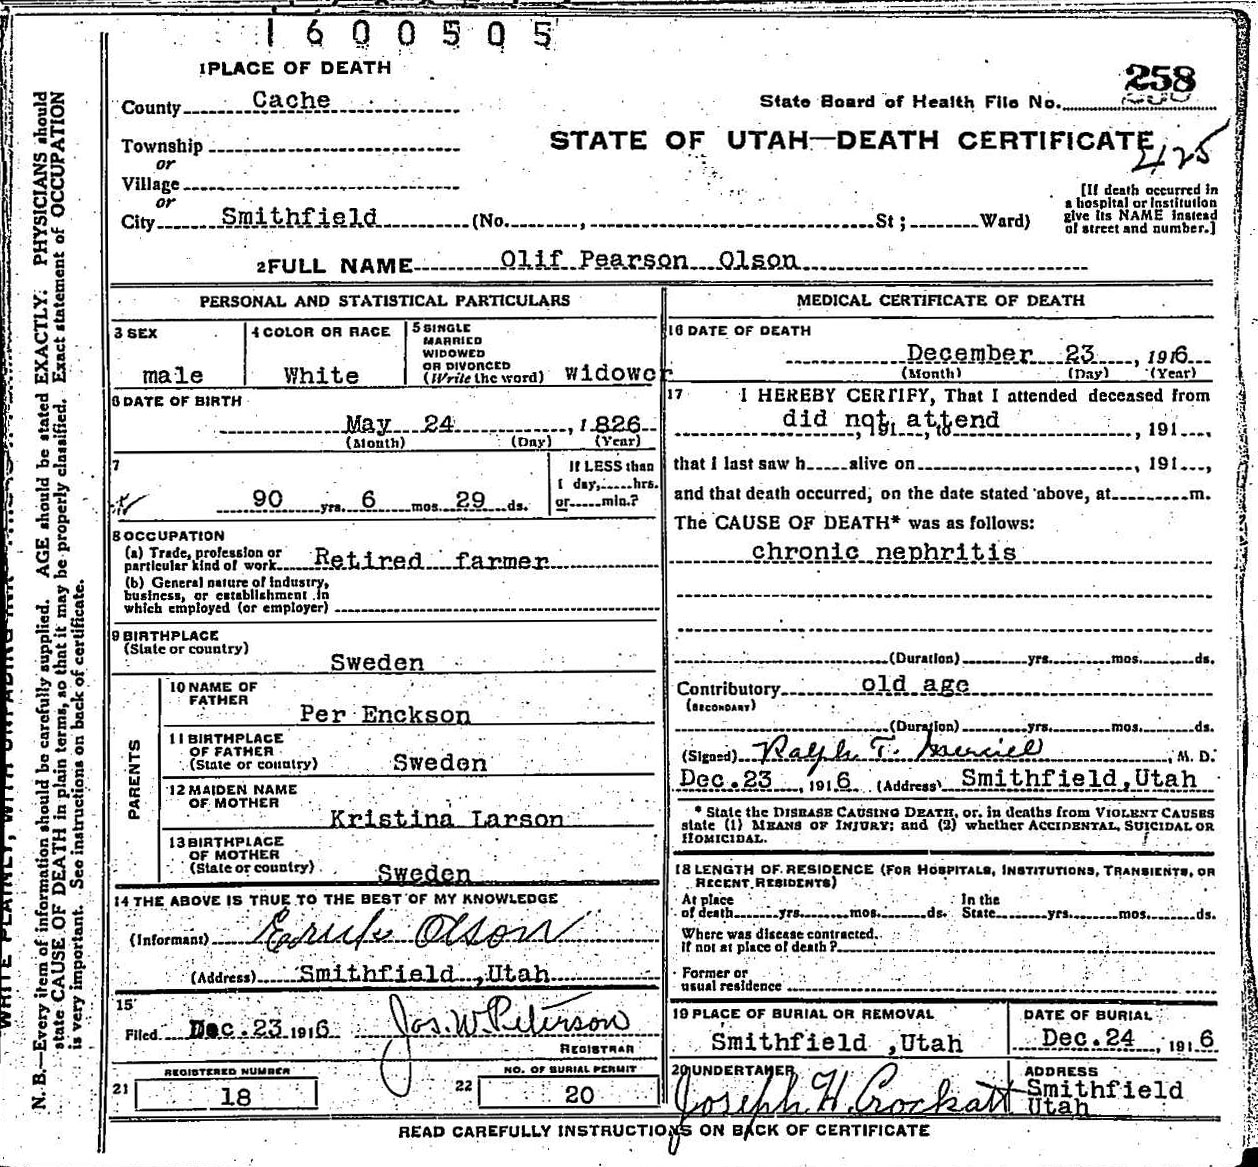 1600505
1 PLACE OF DEATH
County Cache
State Board of Health File No. 258
Township
or
STATE OF UTAH—DEATH CERTIFICATE
425
Village
or
City Smithfield (No. , St; Ward)
[If death occurred in
a hospital or institution
give its NAME instead
of street and number.]
2 FULL NAME Olif Pearson Olson
PERSONAL AND STATISTICAL PARTICULARS
3 SEX
male
4 COLOR OR RACE
White
5 SINGLE
MARRIED
WIDOWED
OR DIVORCED
(Write the word) widower
6 DATE OF BIRTH
May 24 , 1826
(Month) (Day) (Year)
7
90 yrs. 6 mos. 29 ds.
If LESS than
1 day, hrs.
or min.?
8 OCCUPATION
(a) Trade, profession or
particular kind of work Retired farmer
(b) General nature of industry,
business, or establishment in
which employed (or employer)
9 BIRTHPLACE
(State or country)
Sweden
PARENTS
10 NAME OF
FATHER
Per Enckson
11 BIRTHPLACE
OF FATHER
(State or country) Sweden
12 MAIDEN NAME
OF MOTHER
Kristina Larson
13 BIRTHPLACE
OF MOTHER
(State or country) Sweden
14 THE ABOVE IS TRUE TO THE BEST OF MY KNOWLEDGE
(Informant) Olson
(Address) Smithfield ,Utah
15
Filed Dec.23 1916 Jos. W. Peterson
REGISTRAR
REGISTERED NUMBER
21 18
NO. OF BURIAL PERMIT
22 20
MEDICAL CERTIFICATE OF DEATH
16 DATE OF DEATH
December 23 , 1916
(Month) (Day) (Year)
17 I HEREBY CERTIFY, That I attended deceased from
did not attend
, 191 , to , 191 ,
that I last saw h alive on , 191 ,
and that death occurred, on the date stated above, at m.
The CAUSE OF DEATH* was as follows:
chronic nephritis
(Duration) yrs. mos. ds.
Contributory old age
(SECONDARY)
(Duration) yrs. mos. ds.
(Signed) Ralph T. , M. D.
Dec.23 , 1916 (Address) Smithfield,Utah
* State the DISEASE CAUSING DEATH, or, in deaths from VIOLENT CAUSES
state (1) MEANS OF INJURY; and (2) whether ACCIDENTAL, SUICIDAL OR
HOMICIDAL.
18 LENGTH OF RESIDENCE (FOR HOSPITALS, INSTITUTIONS, TRANSIENTS, OR
RECENT RESIDENTS)
At place In the
of death yrs. mos. ds. State yrs. mos. ds.
Where was disease contracted.
If not at place of death?
Former or
usual residence
19 PLACE OF BURIAL OR REMOVAL
Smithfield ,Utah
DATE OF BURIAL
Dec.24 , 1916
20 UNDERTAKER
Joseph H. Crockatt
ADDRESS
Smithfield
Utah
READ CAREFULLY INSTRUCTIONS ON BACK OF CERTIFICATE
N. B.—Every item of information should be carefully supplied. AGE should be stated EXACTLY. PHYSICIANS should
state CAUSE OF DEATH in plain terms, so that it may be properly classified. Exact statement of OCCUPATION
is very important. See instructions on back of certificate.